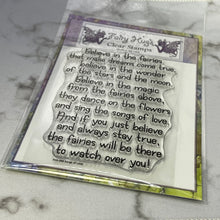 Fairy Hugs
Clear Stamps
Believe in the fairies
that make dreams come true,
believe in the wonder
of the stars and the moon.
Believe in the magic
from the fairies above,
they dance on the flowers
and sing the songs of love.
And if you just believe
and always stay true,
the fairies will be there
to watch over you!